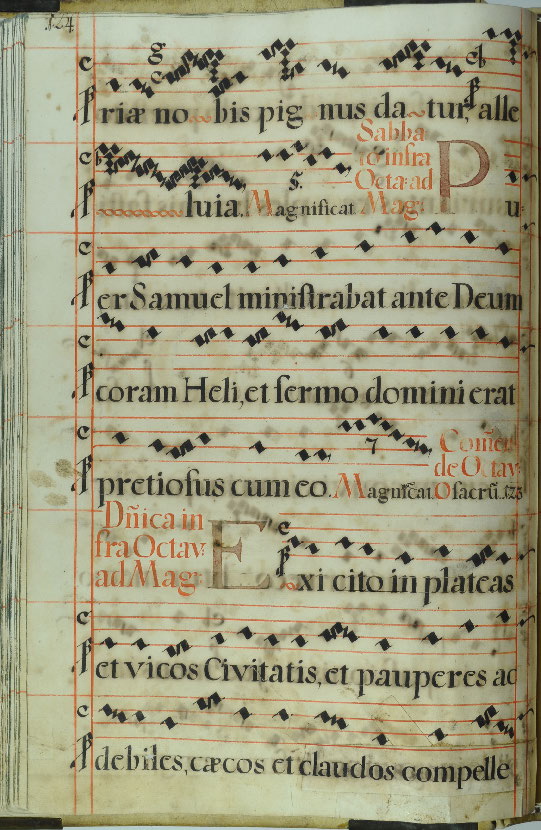 124
riæ no bis pig nus da tur, alle
luia. Magnificat
Sabba
to infra
Octa: ad
Mag:
Pu
er Samuel miniſtrabat ante Deum
coram Heli, et ſermo domini erat
pretioſus cum eo. Magnificat.
de Octav:
O ſacrũ. 123
Dñica in
fra Octav:
ad Mag:
Exi cito in plateas
et vicos Civitatis, et pauperes ac
debiles, cæcos et claudos compelle